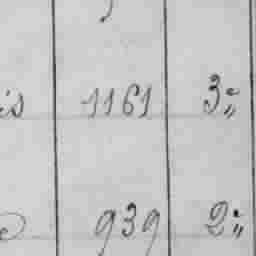 is 1161 3
939 2